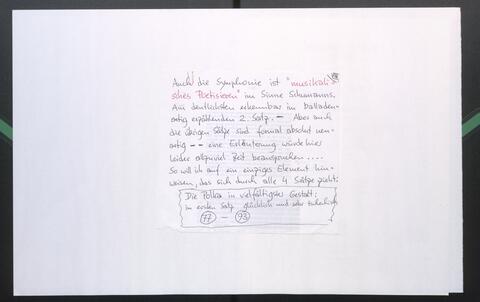 Auch die Symphonie ist "musikali-
sches Poetisieren" im Sinne Schumanns.
Am deutlichsten erkennbar im balladen-
artig erzählenden 2. Satz. — Aber auch
die übrigen Sätze sind formal absolut neu-
artig -- eine Erläuterung würde hier
leider allzuviel Zeit beanspruchen ....
So will ich auf ein einziges Element hin-
weisen, das sich durch alle 4 Sätze zieht:
Die Polka in vielfältigster Gestalt:
im ersten Satz glücklich und sehr
77 — 93